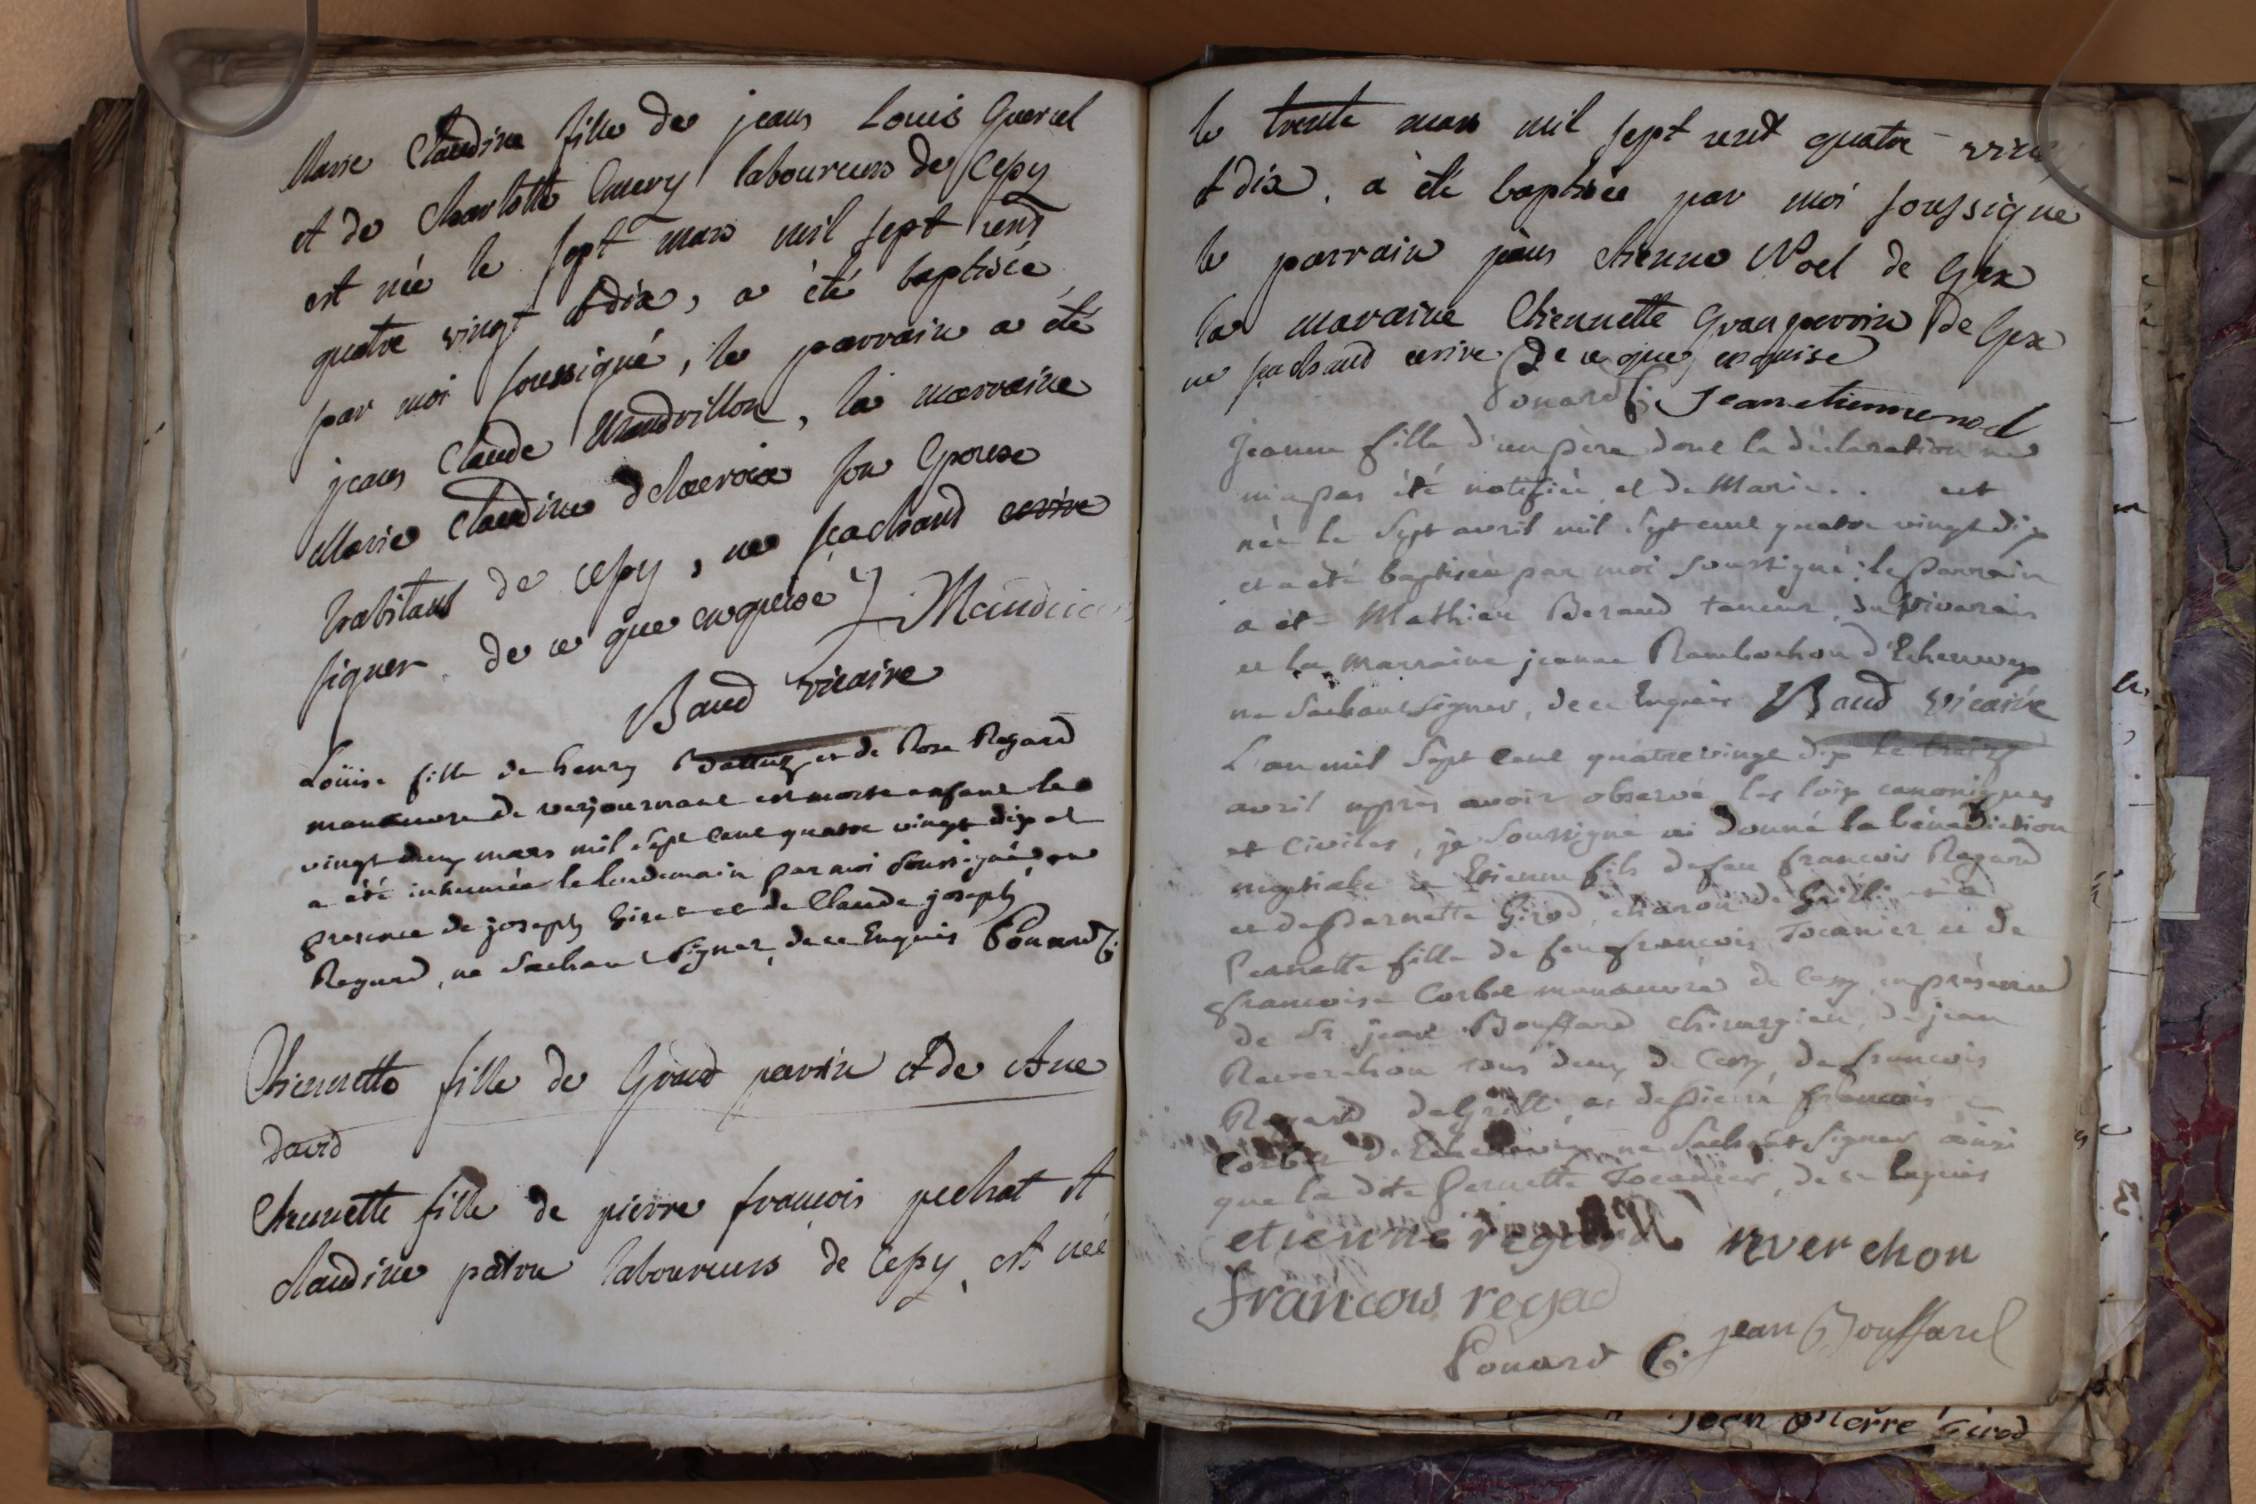 Marie Claudine fille de jean Louis
et de Charlotte Emery laboureurs de Cessy
est née le sept mars mil sept cent
quatre vingt et dix, a été baptisée
par moi soussigné, le parrain a été
jean Claude Mandrillon, la marraine
Marie Claudine delacroix son Epouse
habitans de cessy, ne sçachand
signer de ce que enquise
Baud vicaire
Loüise fille de henry et de Rose Regard
manœuvre de verjournant est morte enfant le
vingt deux mars mil sept cent quatre vingt dix et
a été inhumée le lendemain par moi soussigné en
presence de joseph Girod et de Claude joseph
Regard, ne sachant signer, de ce Enquis Ponard C.
Etiennette fille de Grand perrin et de Ane
david
Etiennette fille de pierre françois pechat et
claudine patru laboureurs de Cessy, est née
le trente mars mil sept cent quatre vingt
et dix, a été baptisée par moi soussigné
le parrain jean Etienne Noel de Gex
la maraine Etiennette Grangperrin de Gex
ne sçachand ecrire de ce que enquise
Ponard C. Jean etienne noel
Jeanne fille d'un père dont la déclaration ne
m'a pas été notifiée, et de Marie .. est
née le sept avril mil sept cent quatre vingt dix
et a été baptisée par moi soussigné: le Parrain
a été Mathieu Beraud taneur, du vivarais
et la Marraine jeanne d'Echenevex
ne sachant signer, de ce Enquis Baud vicaire
L'an mil sept cent quatre vingt dix le treize
avril après avoir observé les loix canoniques
et civiles, je soussigné ai donné la bénédiction
nuptiale a Etienne fils de feu françois Regard
et de Pernette Girod, charon de Grilli, et a
Pernette fille de feu françois Tocanier et de
françoise Corbet manœuvre de Cessy, en présence
de Sr jean Bouffard chirurgien, de jean
Reverchon tous deux de Cessy, de francois
Regard de Grilli, et de Pierre françois
Corbet d'Echenevex, ne sachant signer ainsi
que la dite Pernette Tocanier, de ce Enquis
etienne regard reverchon
francois regad
Ponard C. jean Bouffard
Jean Pierre Girod